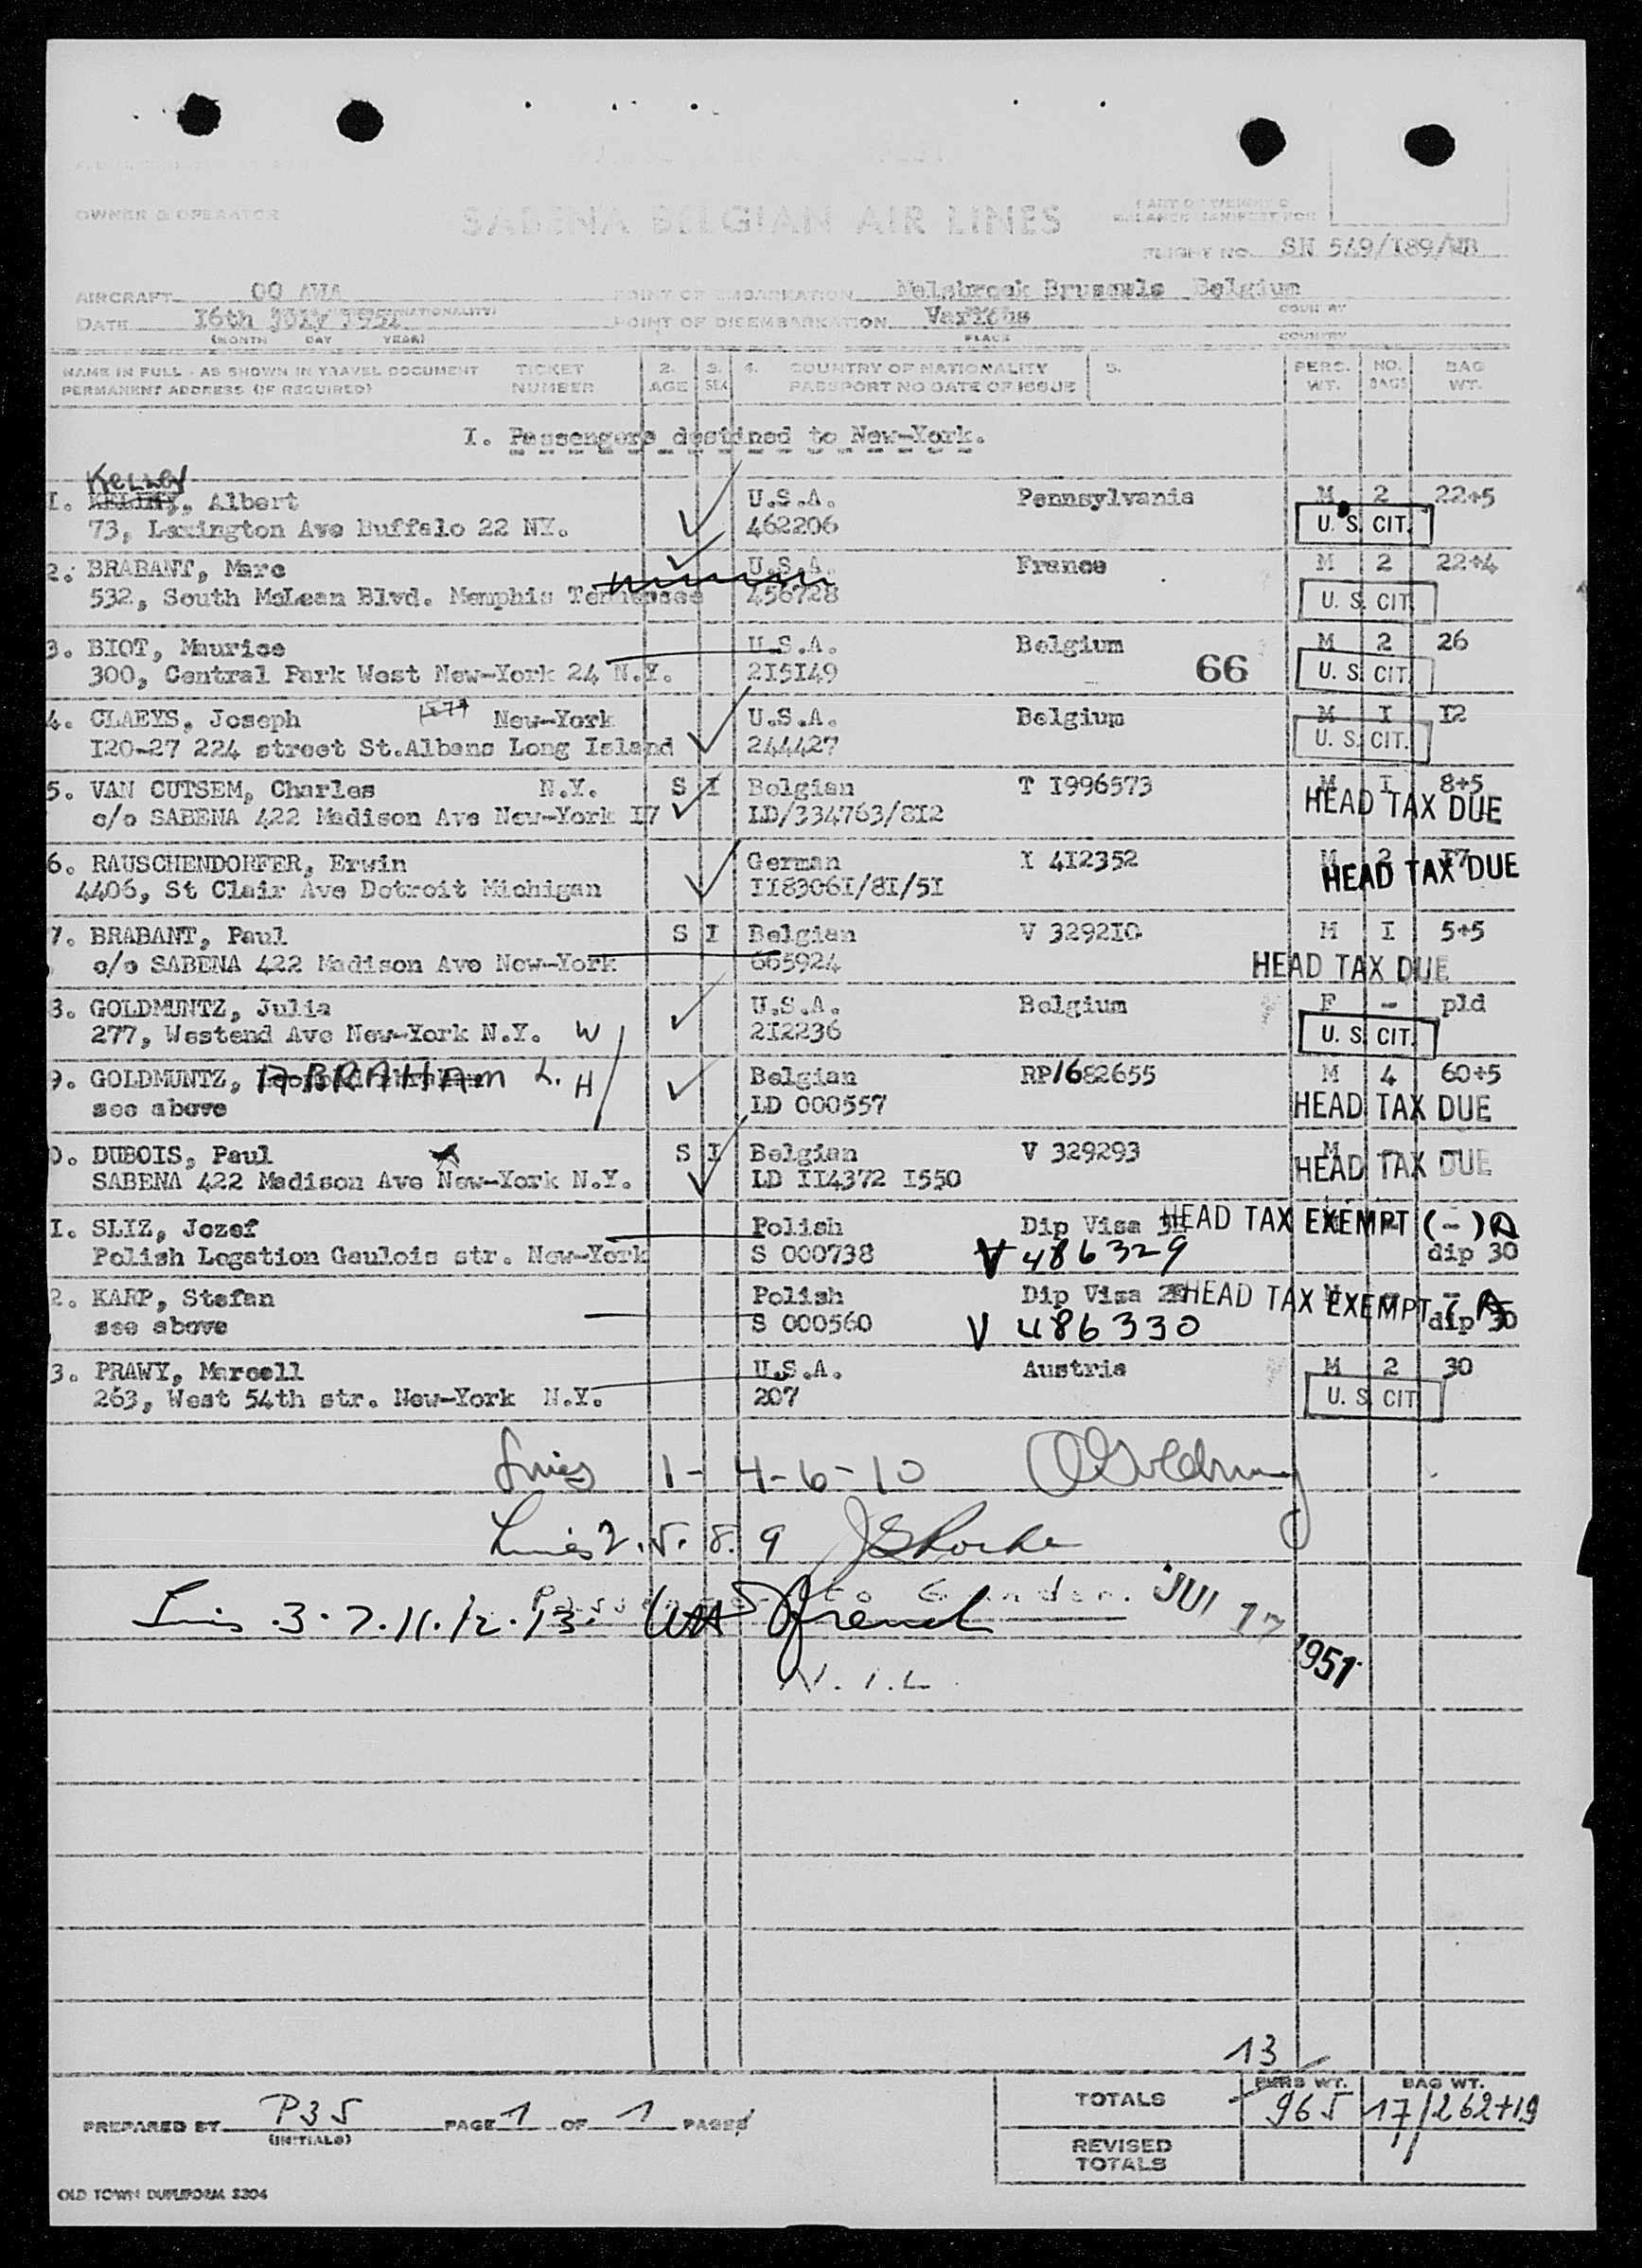 OWNER & OPERATOR
SABENA BELGIAN AIR LINES
PART OF WEIGHT &
BALANCE MANIFEST FOR
FLIGHT NO. SN 549/I89/WB
AIRCRAFT OO AWA POINT OF EMBARKATION Melsbroek Brussels Belgium
(NATIONALITY) COUNTRY
DATE 16th July 1951 POINT OF DISEMBARKATION Various
(MONTH DAY YEAR) PLACE COUNTRY
NAME IN FULL - AS SHOWN IN TRAVEL DOCUMENT TICKET 2. 3. 4. COUNTRY OF NATIONALITY 5. PERS. NO. BAG
PERMANENT ADDRESS (IF REQUIRED) NUMBER AGE SEX PASSPORT NO DATE OF ISSUE WT. BAGS WT.
I. Passengers destined to New-York.
KeLLey
I. Albert U.S.A. Pennsylvania M 2 22+5
73, Lexington Ave Buffalo 22 NY. 462206 U. S. CIT.
2. BRABANT, Marc U.S.A. France M 2 22+4
532, South McLean Blvd. Memphis Tennessee 456728 U. S. CIT.
3. BIOT, Maurice U.S.A. Belgium M 2 26
300, Central Park West New-York 24 N.Y. 2I5I49 66 U. S. CIT.
4. CLAEYS, Joseph New-York U.S.A. Belgium M I I2
I20-27 224 street St.Albans Long Island 244427 U. S. CIT.
5. VAN CUTSEM, Charles N.Y. S I Belgian T I996573 M I 8+5
c/o SABENA 422 Madison Ave New-York I7 LD/334763/8I2 HEAD TAX DUE
6. RAUSCHENDORFER, Erwin German I 4I2352 M 2 I7
4406, St Clair Ave Detroit Michigan II8306I/8I/5I HEAD TAX DUE
7. BRABANT, Paul S I Belgian V 3292I0 M I 5+5
c/o SABENA 422 Madison Ave New-York 665924 HEAD TAX DUE
8. GOLDMUNTZ, Julia U.S.A. Belgium F - pld
277, Westend Ave New-York N.Y. W 2I2236 U. S. CIT.
9. GOLDMUNTZ, ABRAHAM L. H Belgian RP/1682655 M 4 60+5
see above LD 000557 HEAD TAX DUE
0. DUBOIS, Paul S I Belgian V 329293 M
SABENA 422 Madison Ave New-York N.Y. LD II4372 I550 HEAD TAX DUE
I. SLIZ, Jozef Polish Dip Visa HEAD TAX EXEMPT (-) A
Polish Legation Gaulois str. New-York S 000738 V 486329 dip 30
2. KARP, Stefan Polish Dip Visa HEAD TAX EXEMPT (A
see above S 000560 V 486330 dip 30
3. PRAWY, Marcell U.S.A. Austria M 2 30
263, West 54th str. New-York N.Y. 207 U. S. CIT
Lines 1-4-6-10
Lines 2.5.8.9
Passengers to Gander. JUL 17 1951
Lines .3.7.11.12.13.
N.I.L.
13
TOTALS PERS WT. 965 BAG WT. 17/262+19
PREPARED BY P35 PAGE 1 OF 1 PAGES
(INITIALS)
REVISED
TOTALS
OLD TOWN DUPLIFORM S304